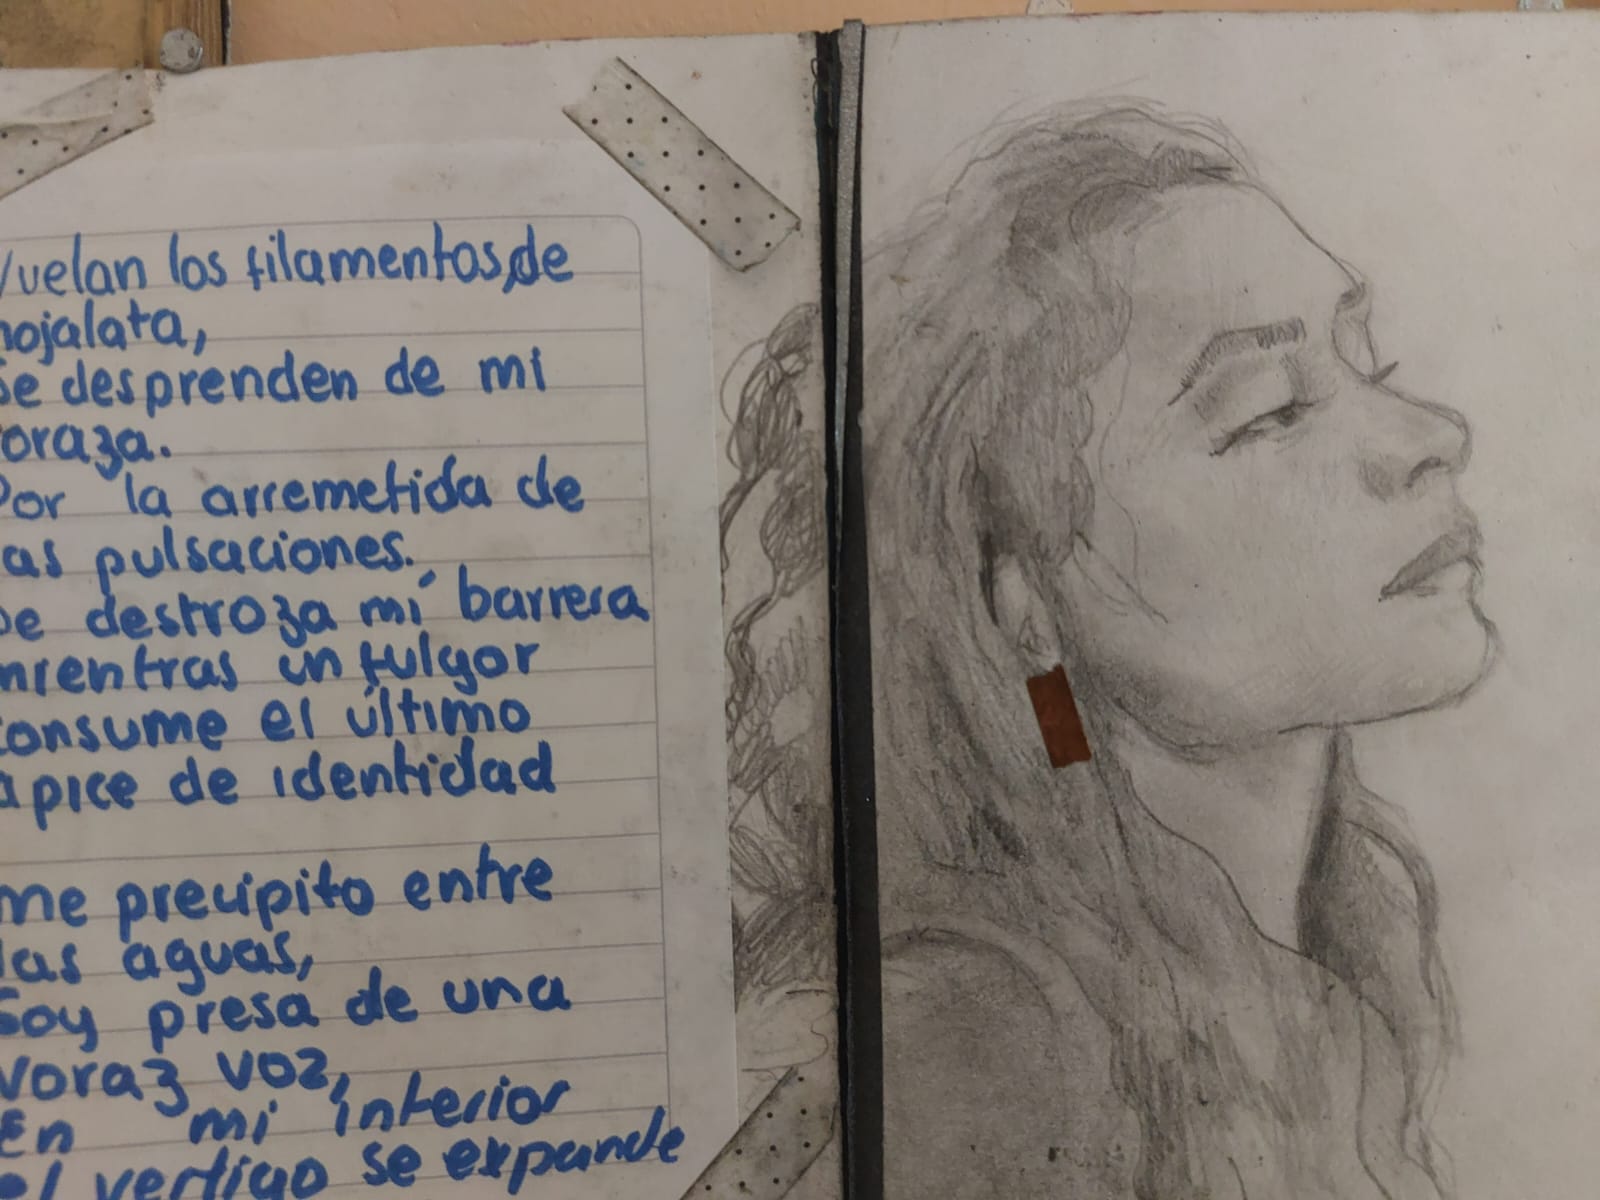 Vuelan los filamentos, de
hojalata,
Se desprenden de mi
coraza.
Por la arremetida de
las pulsaciones.
Se destroza mi barrera
mientras un fulgor
consume el último
apice de identidad
me precipito entre
las aguas,
Soy presa de una
voraz voz,
En mi interior
el vertigo se expande